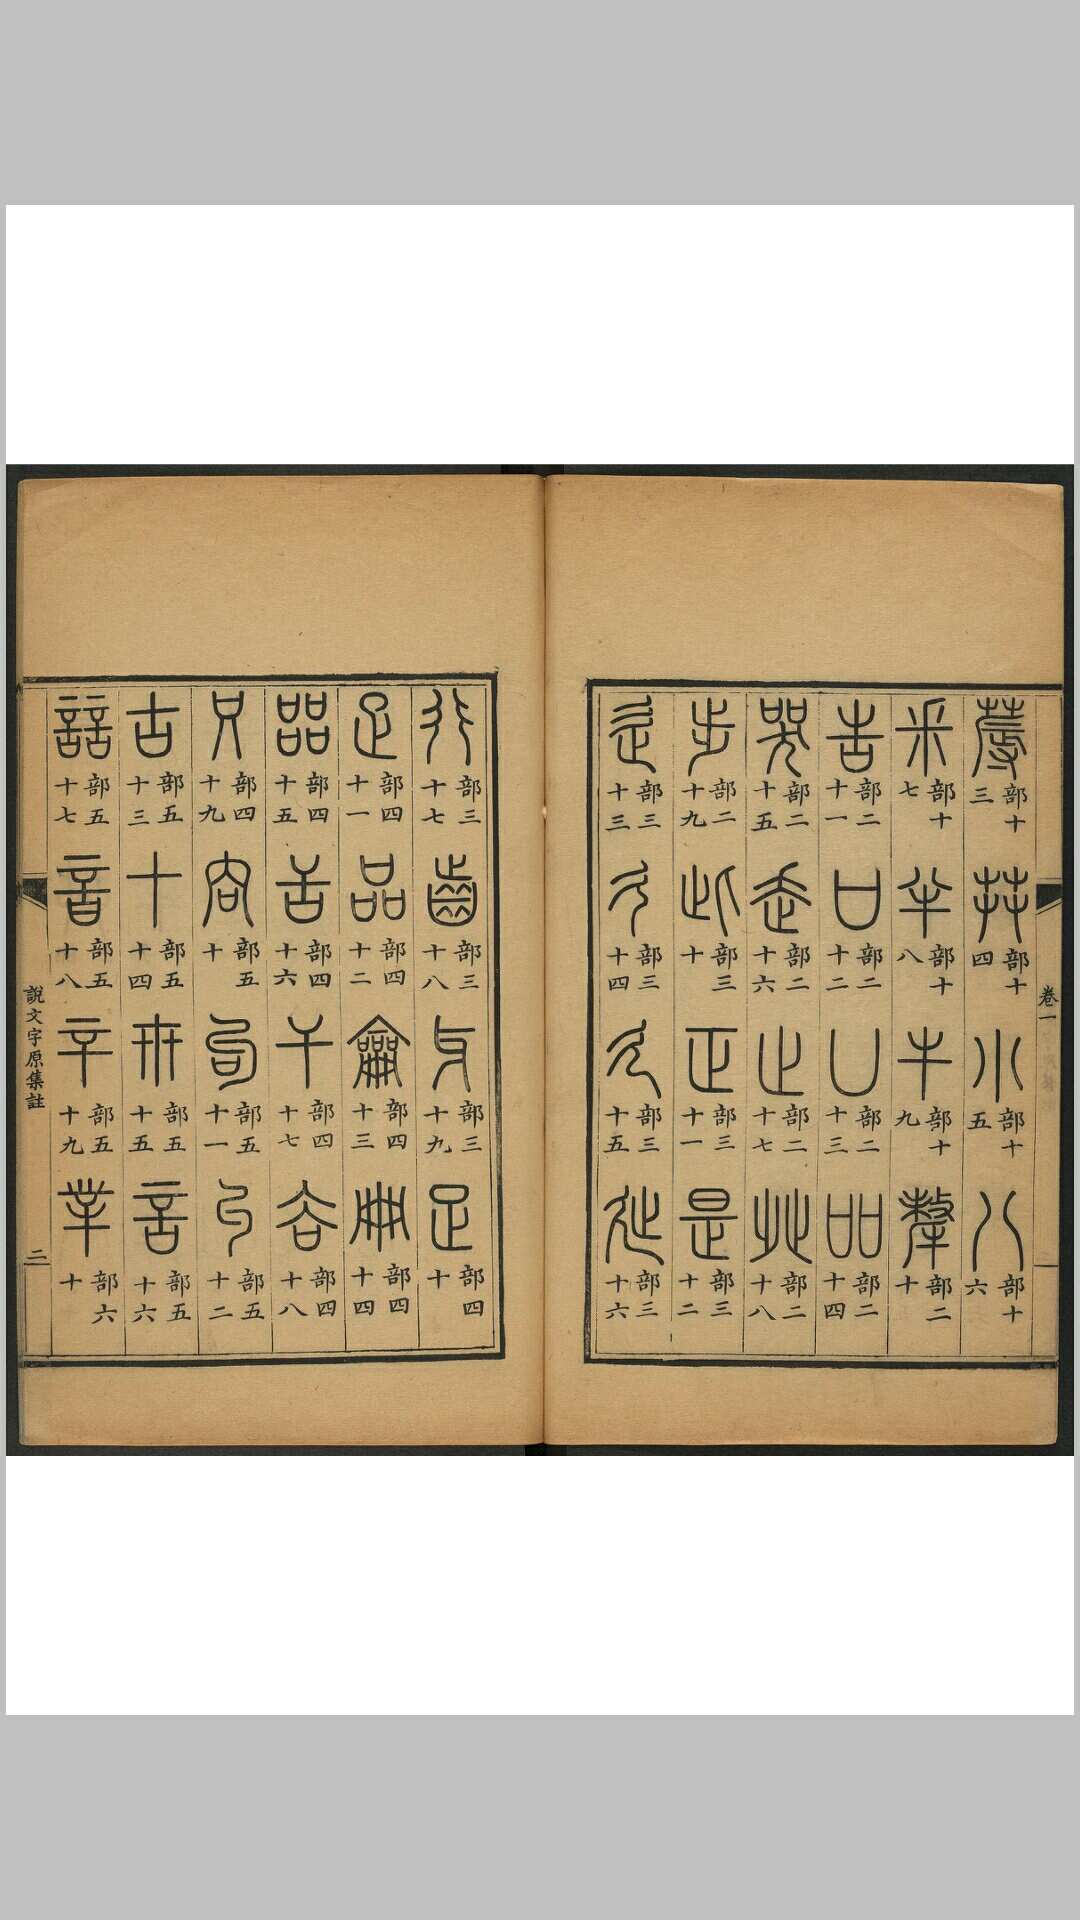 卷一
蓐 部十三 茻 部十四 小 部十五 八 部十六
釆 部十七 半 部十八 牛 部十九 犛 部二十
告 部二十一 口 部二十二 凵 部二十三 吅 部二十四
哭 部二十五 走 部二十六 止 部二十七 癶 部二十八
步 部二十九 此 部三十 正 部三十一 是 部三十二
辵 部三十三 彳 部三十四 廴 部三十五 㢟 部三十六
行 部三十七 齒 部三十八 牙 部三十九 足 部四十
疋 部四十一 品 部四十二 龠 部四十三 冊 部四十四
㗊 部四十五 舌 部四十六 干 部四十七 𧮫 部四十八
只 部四十九 㕯 部五十 句 部五十一 丩 部五十二
古 部五十三 十 部五十四 卅 部五十五 言 部五十六
誩 部五十七 音 部五十八 䇂 部五十九 丵 部六十
說文字原集註 二